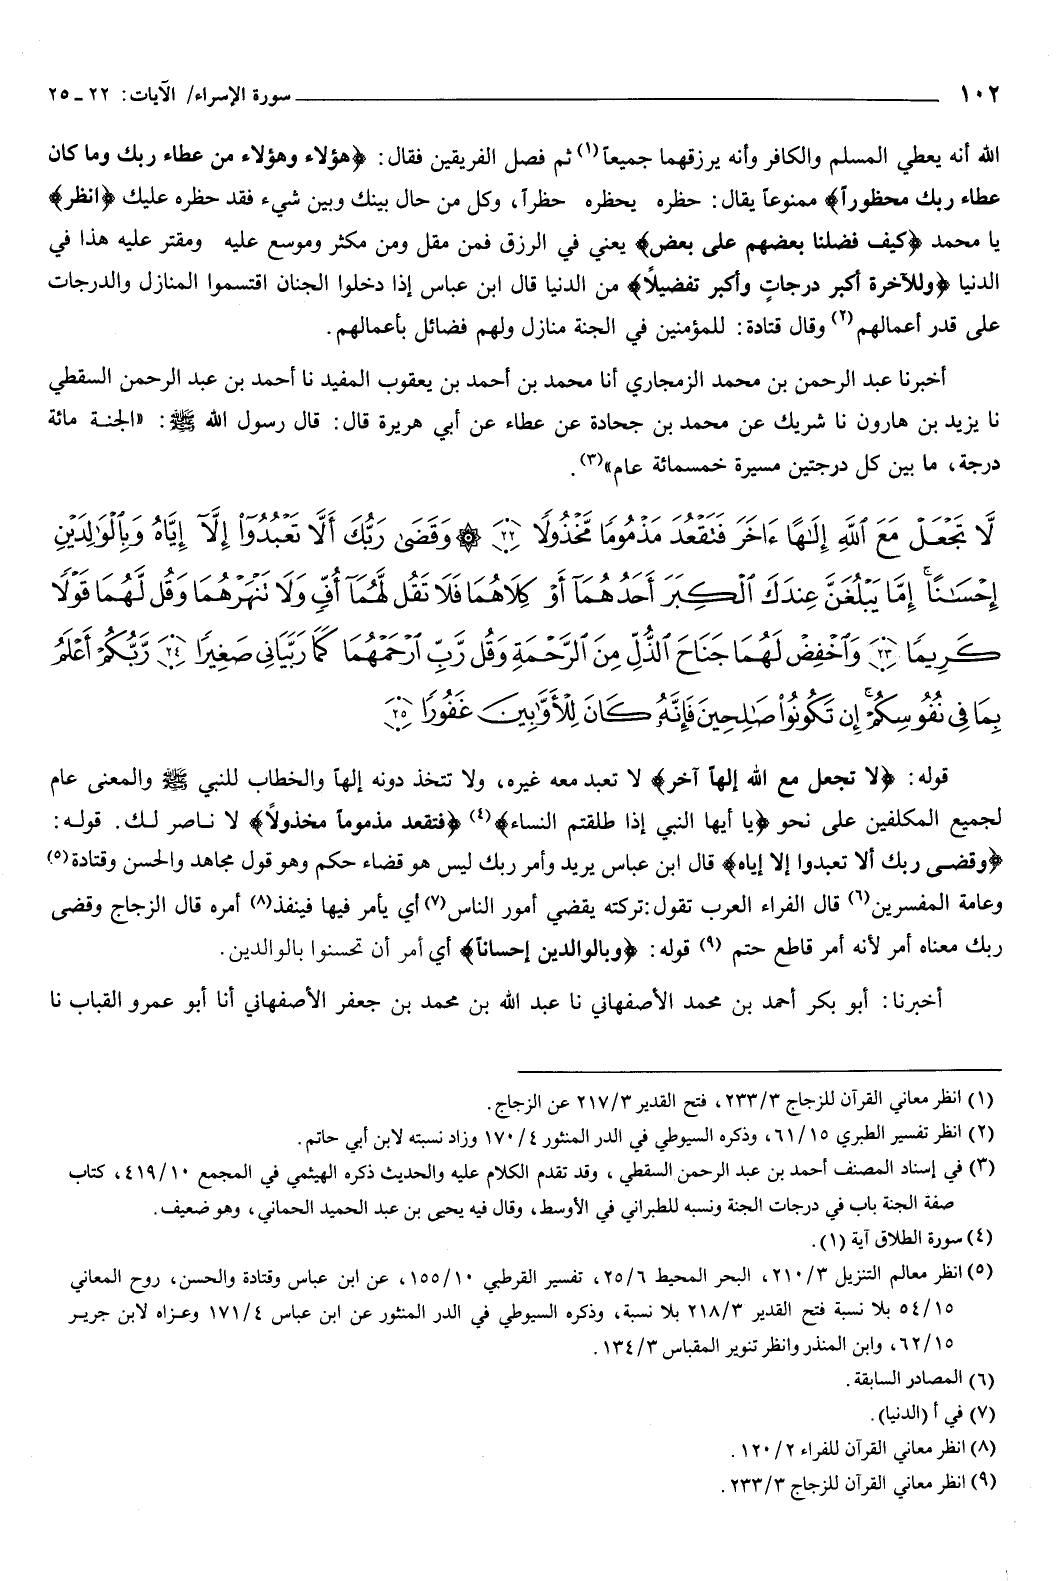 ١٠٢ سورة الإسراء/ الآيات: ٢٢ ـ ٢٥
الله أنه يعطي المسلم والكافر وأنه يرزقهما جميعاً(١) ثم فصل الفريقين فقال: ﴿هؤلاء وهؤلاء من عطاء ربك وما كان
عطاء ربك محظوراً﴾ ممنوعاً يقال: حظره يحظره حظراً، وكل من حال بينك وبين شيء فقد حظره عليك ﴿انظر﴾
يا محمد ﴿كيف فضلنا بعضهم على بعض﴾ يعني في الرزق فمن مقل ومن مكثر وموسع عليه ومقتر عليه هذا في
الدنيا ﴿وللآخرة أكبر درجاتٍ وأكبر تفضيلاً﴾ من الدنيا قال ابن عباس إذا دخلوا الجنان اقتسموا المنازل والدرجات
على قدر أعمالهم(٢) وقال قتادة: للمؤمنين في الجنة منازل ولهم فضائل بأعمالهم.
أخبرنا عبد الرحمن بن محمد الزمجاري أنا محمد بن أحمد بن يعقوب المفيد نا أحمد بن عبد الرحمن السقطي
نا يزيد بن هارون نا شريك عن محمد بن جحادة عن عطاء عن أبي هريرة قال: قال رسول الله ﷺ: «الجنة مائة
درجة، ما بين كل درجتين مسيرة خمسمائة عام»(٣).
لَّا تَجْعَلْ مَعَ ٱللَّهِ إِلَٰهًا ءَاخَرَ فَتَقْعُدَ مَذْمُومًا مَّخْذُولًا ﴿٢٢﴾ ۞ وَقَضَىٰ رَبُّكَ أَلَّا تَعْبُدُوٓا۟ إِلَّآ إِيَّاهُ وَبِٱلْوَٰلِدَيْنِ
إِحْسَٰنًا ۚ إِمَّا يَبْلُغَنَّ عِندَكَ ٱلْكِبَرَ أَحَدُهُمَآ أَوْ كِلَاهُمَا فَلَا تَقُل لَّهُمَآ أُفٍّ وَلَا تَنْهَرْهُمَا وَقُل لَّهُمَا قَوْلًا
كَرِيمًا ﴿٢٣﴾ وَٱخْفِضْ لَهُمَا جَنَاحَ ٱلذُّلِّ مِنَ ٱلرَّحْمَةِ وَقُل رَّبِّ ٱرْحَمْهُمَا كَمَا رَبَّيَانِى صَغِيرًا ﴿٢٤﴾ رَّبُّكُمْ أَعْلَمُ
بِمَا فِى نُفُوسِكُمْ ۚ إِن تَكُونُوا۟ صَٰلِحِينَ فَإِنَّهُۥ كَانَ لِلْأَوَّٰبِينَ غَفُورًا ﴿٢٥﴾
قوله: ﴿لا تجعل مع الله إلهاً آخر﴾ لا تعبد معه غيره، ولا تتخذ دونه إلهاً والخطاب للنبي ﷺ والمعنى عام
لجميع المكلفين على نحو ﴿يا أيها النبي إذا طلقتم النساء﴾(٤) ﴿فتقعد مذموماً مخذولاً﴾ لا ناصر لك. قوله:
﴿وقضى ربك ألا تعبدوا إلا إياه﴾ قال ابن عباس يريد وأمر ربك ليس هو قضاء حكم وهو قول مجاهد والحسن وقتادة(٥)
وعامة المفسرين(٦) قال الفراء العرب تقول: تركته يقضي أمور الناس(٧) أي يأمر فيها فينفذ(٨) أمره قال الزجاج وقضى
ربك معناه أمر لأنه أمر قاطع حتم (٩) قوله: ﴿وبالوالدين إحساناً﴾ أي أمر أن تحسنوا بالوالدين.
أخبرنا: أبو بكر أحمد بن محمد الأصفهاني نا عبد الله بن محمد بن جعفر الأصفهاني أنا أبو عمرو القباب نا
(١) انظر معاني القرآن للزجاج ٢٣٣/٣، فتح القدير ٢١٧/٣ عن الزجاج.
(٢) انظر تفسير الطبري ٦١/١٥، وذكره السيوطي في الدر المنثور ١٧٠/٤ وزاد نسبته لابن أبي حاتم.
(٣) في إسناد المصنف أحمد بن عبد الرحمن السقطي، وقد تقدم الكلام عليه والحديث ذكره الهيثمي في المجمع ٤١٩/١٠، كتاب
صفة الجنة باب في درجات الجنة ونسبه للطبراني في الأوسط، وقال فيه يحيى بن عبد الحميد الحماني، وهو ضعيف.
(٤) سورة الطلاق آية (١).
(٥) انظر معالم التنزيل ٢١٠/٣، البحر المحيط ٢٥/٦، تفسير القرطبي ١٥٥/١٠، عن ابن عباس وقتادة والحسن، روح المعاني
٥٤/١٥ بلا نسبة فتح القدير ٢١٨/٣ بلا نسبة، وذكره السيوطي في الدر المنثور عن ابن عباس ١٧١/٤ وعزاه لابن جرير
٦٢/١٥، وابن المنذر وانظر تنوير المقباس ١٣٤/٣.
(٦) المصادر السابقة.
(٧) في أ (الدنيا).
(٨) انظر معاني القرآن للفراء ١٢٠/٢.
(٩) انظر معاني القرآن للزجاج ٢٣٣/٣.